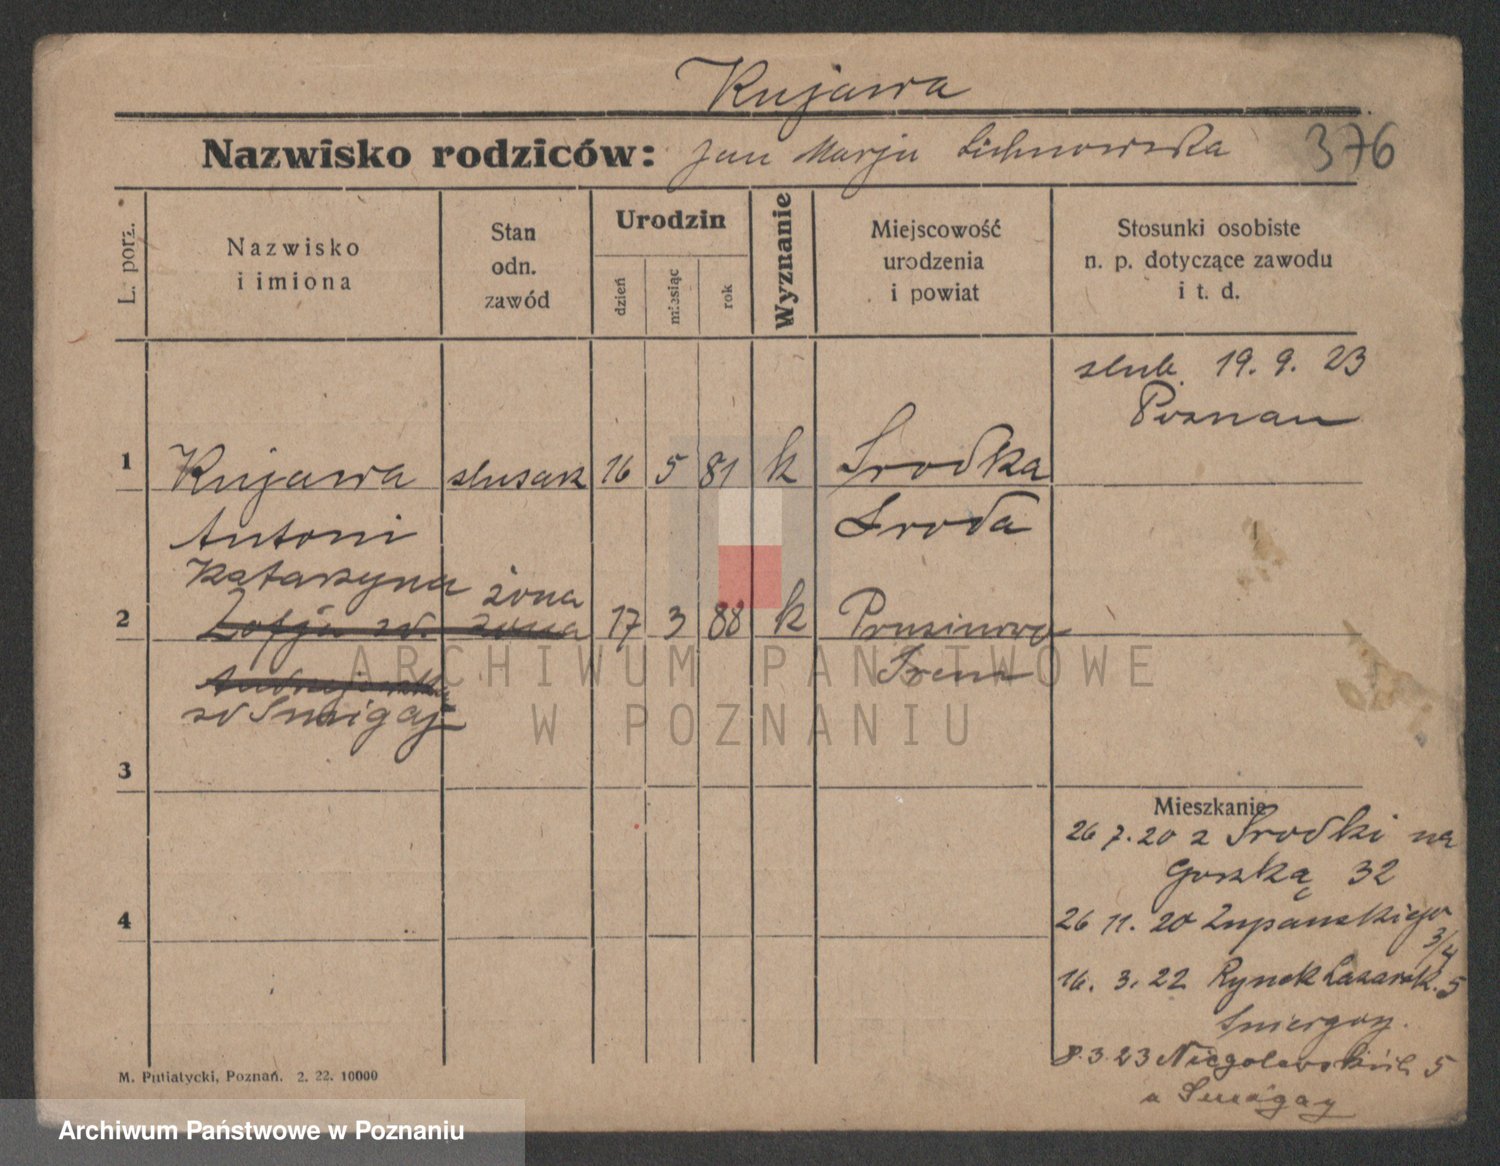 Kujawa
Nazwisko rodziców: Jan Marja Lichnowska 376
L. porz.
Nazwisko
i imiona
Stan
odn.
zawód
Urodzin
dzień
miesiąc
rok
Wyznanie
Miejscowość
urodzenia
i powiat
Stosunki osobiste
n. p. dotyczące zawodu
i t. d.
slub 19. 9. 23
Poznan
1 Kujawa slusarz 16 5 81 k Srodka
Antoni Sroda
Katarzyna żona
2 Zofja zd. żona 17 3 88 k Prusinowo
Srem
zd Smigaj
3
Mieszkanie
26 7. 20 z Srodki na
Gorską 32
4
26 11. 20 Zupanskiego
3/4
16. 3. 22 Rynek Lazarsk. 5
8. 3 23 Niegolewskich 5
u Smigay
M. Putiatycki, Poznań. 2. 22. 10000
ARCHIWUM PAŃSTWOWE
W POZNANIU
Archiwum Państwowe w Poznaniu